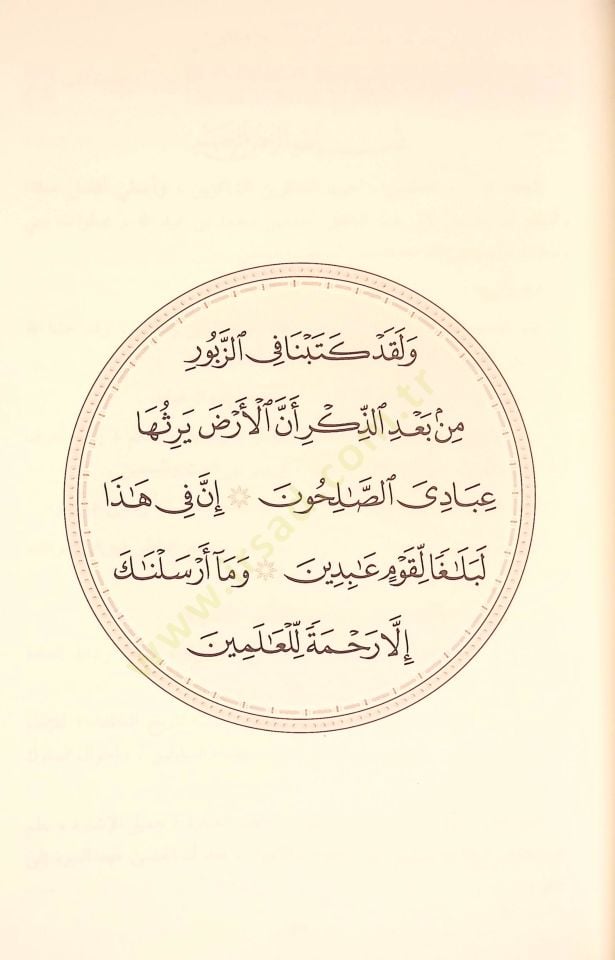 وَلَقَدْ كَتَبْنَا فِي الزَّبُورِ
مِنۢ بَعْدِ الذِّكْرِ أَنَّ الْأَرْضَ يَرِثُهَا
عِبَادِيَ الصَّٰلِحُونَ ۞ إِنَّ فِي هَٰذَا
لَبَلَٰغًا لِّقَوْمٍ عَٰبِدِينَ ۞ وَمَآ أَرْسَلْنَٰكَ
إِلَّا رَحْمَةً لِّلْعَٰلَمِينَ